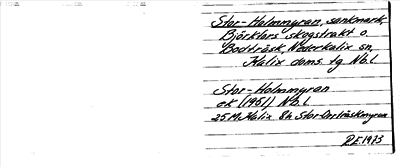 Stor-Holmmyran, sankmark,
Björklers skogstrakt o.
Bodträsk, Nederkalix sn,
Kalix doms. tg Nb.l
Stor-Holmmyran
ek (1951) Nb.l
25M Kalix 8h Stor-Onträskmyran
R.E. 1973